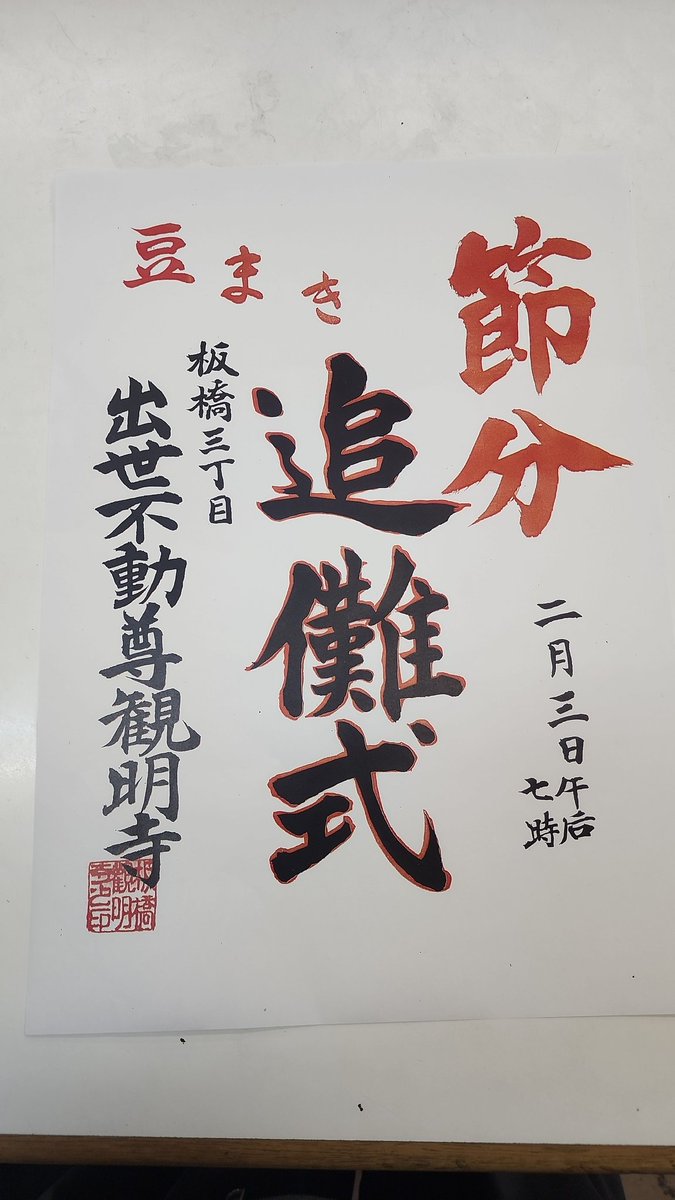 節分
二月三日午后
七時
追儺式
豆まき
板橋三丁目
出世不動尊観明寺
板橋
観明
寺之印